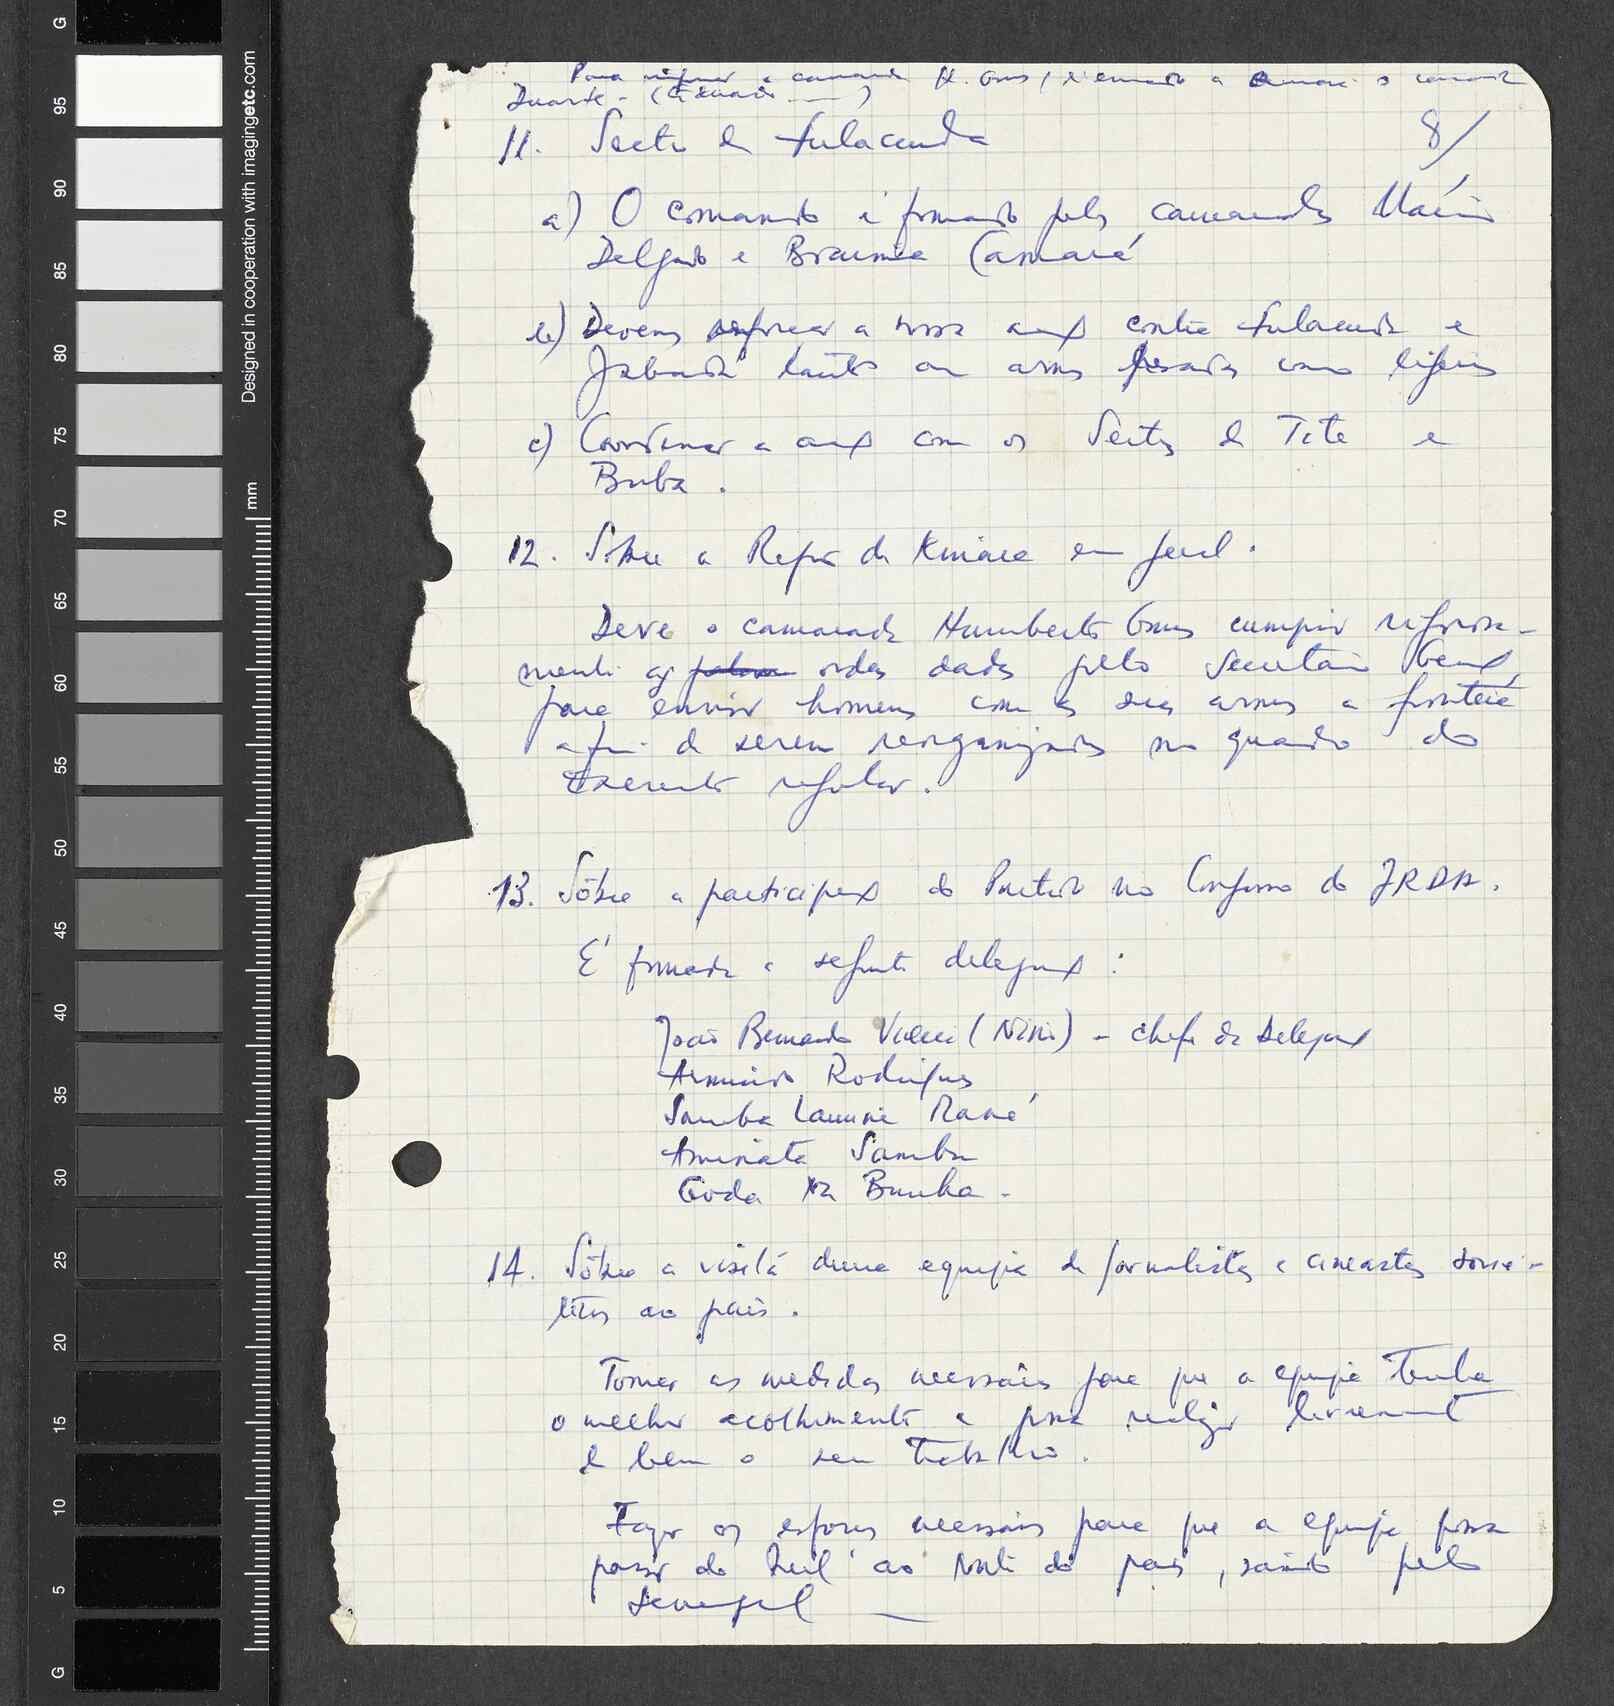 Duarte - (
11. Sector de Fulacunda
8/
a) O comando é formado pelos camaradas Mário
Delgado e Braima Camará
b) Devemos reforçar a nossa acção contra Fulacunda e
Jabadá tanto em armas pesadas como ligeiras
c) Coordenar a acção com os Sectores de Tite e
Buba.
12. Sôbre a Região de Kinara em geral.
Deve o camarada Humberto Gomes cumprir rigorosa-
mente as ordens dadas pelo Secretário Geral
para enviar homens com as suas armas a fronteira
a fim de serem reorganizados no quadro do
Exercito regular.
13. Sôbre a participação do Partido no Congresso do JRDA.
É formada a seguinte delegação:
João Bernardo Vieira (Nino) - chefe da Delegação
Armando Rodrigues
Samba Lamine Mané
Aminata Samba
Goda Na Bumba -
14. Sôbre a visita duma equipa de jornalistas e cineastas sovié-
ticos ao país.
Tomar as medidas necessárias para que a equipa tenha
o melhor acolhimento e possa realizar livremente
e bem o seu trabalho.
Fazer os esforços necessários para que a equipa possa
passar do Sul ao Norte do país, saindo pelo
Senegal —
Designed in cooperation with imagingetc.com
mm
G
95
90
85
80
75
70
65
60
55
50
45
40
35
30
25
20
15
10
5
G